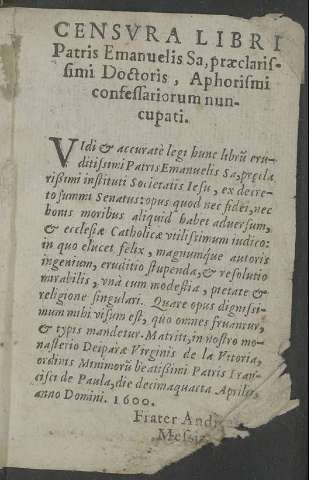 CENSVRA LIBRI
Patris Emanuelis Sa, præclaris-
simi Doctoris, Aphorismi
confessariorum nun-
cupati.
VIdi & accuratè legi hunc librũ eru-
ditissimi Patris Emanuelis Sa, præcla
rissimi instituti Societatis Iesu, ex decre-
to summi Senatus: opus quod nec fidei, nec
bonis moribus aliquid habet aduersum,
& ecclesiæ Catholicæ vtilissimum iudico:
in quo elucet felix, magnumque autoris
ingenium, eruditio stupenda, & resolutio
mirabilis, vnà cum modestia, pietate &
religione singulari. Quare opus dignissi-
mum mihi visum est, quo omnes fruantur,
& typis mandetur. Matriti, in nostro mo-
nasterio Deiparæ Virginis de la Vitoria,
ordinis Minimorũ beatissimi Patris Fran-
cisci de Paula, die decimaquarta Aprilis,
anno Domini. 1600.
Frater